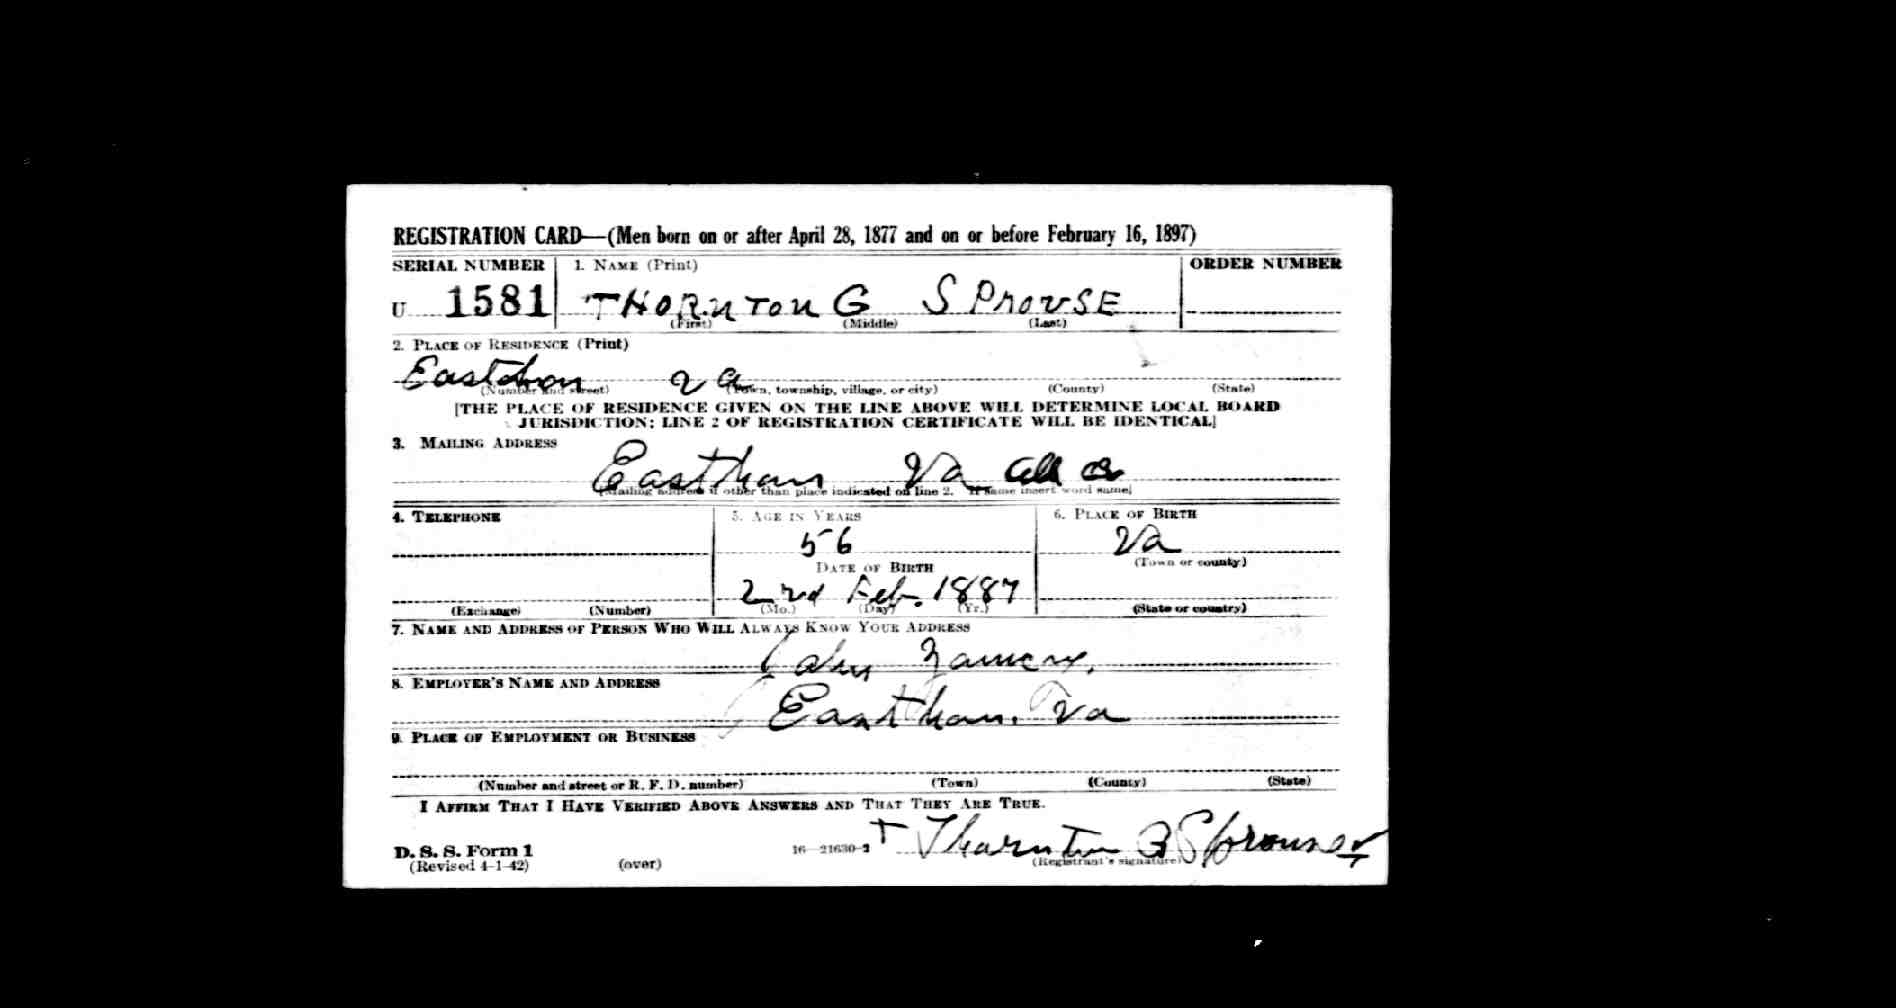 REGISTRATION CARD—(Men born on or after April 28, 1877 and on or before February 16, 1897)
SERIAL NUMBER 1. NAME (Print) ORDER NUMBER
U 1581 THORNTON G SPROUSE
(First) (Middle) (Last)
2. PLACE OF RESIDENCE (Print)
Eastham Va
(Number and street) (Town, township, village, or city) (County) (State)
[THE PLACE OF RESIDENCE GIVEN ON THE LINE ABOVE WILL DETERMINE LOCAL BOARD
JURISDICTION; LINE 2 OF REGISTRATION CERTIFICATE WILL BE IDENTICAL]
3. MAILING ADDRESS
Eastham Va
[Mailing address if other than place indicated on line 2. If same insert word same]
4. TELEPHONE 5. AGE IN YEARS 6. PLACE OF BIRTH
56 Va
DATE OF BIRTH (Town or county)
2nd Feb. 1887
(Exchange) (Number) (Mo.) (Day) (Yr.) (State or country)
7. NAME AND ADDRESS OF PERSON WHO WILL ALWAYS KNOW YOUR ADDRESS
8. EMPLOYER'S NAME AND ADDRESS
Eastham, Va
9. PLACE OF EMPLOYMENT OR BUSINESS
(Number and street or R. F. D. number) (Town) (County) (State)
I AFFIRM THAT I HAVE VERIFIED ABOVE ANSWERS AND THAT THEY ARE TRUE.
D. S. S. Form 1 16—21630-2 Thornton G Sprouse
(Revised 4-1-42) (over) (Registrant's signature)